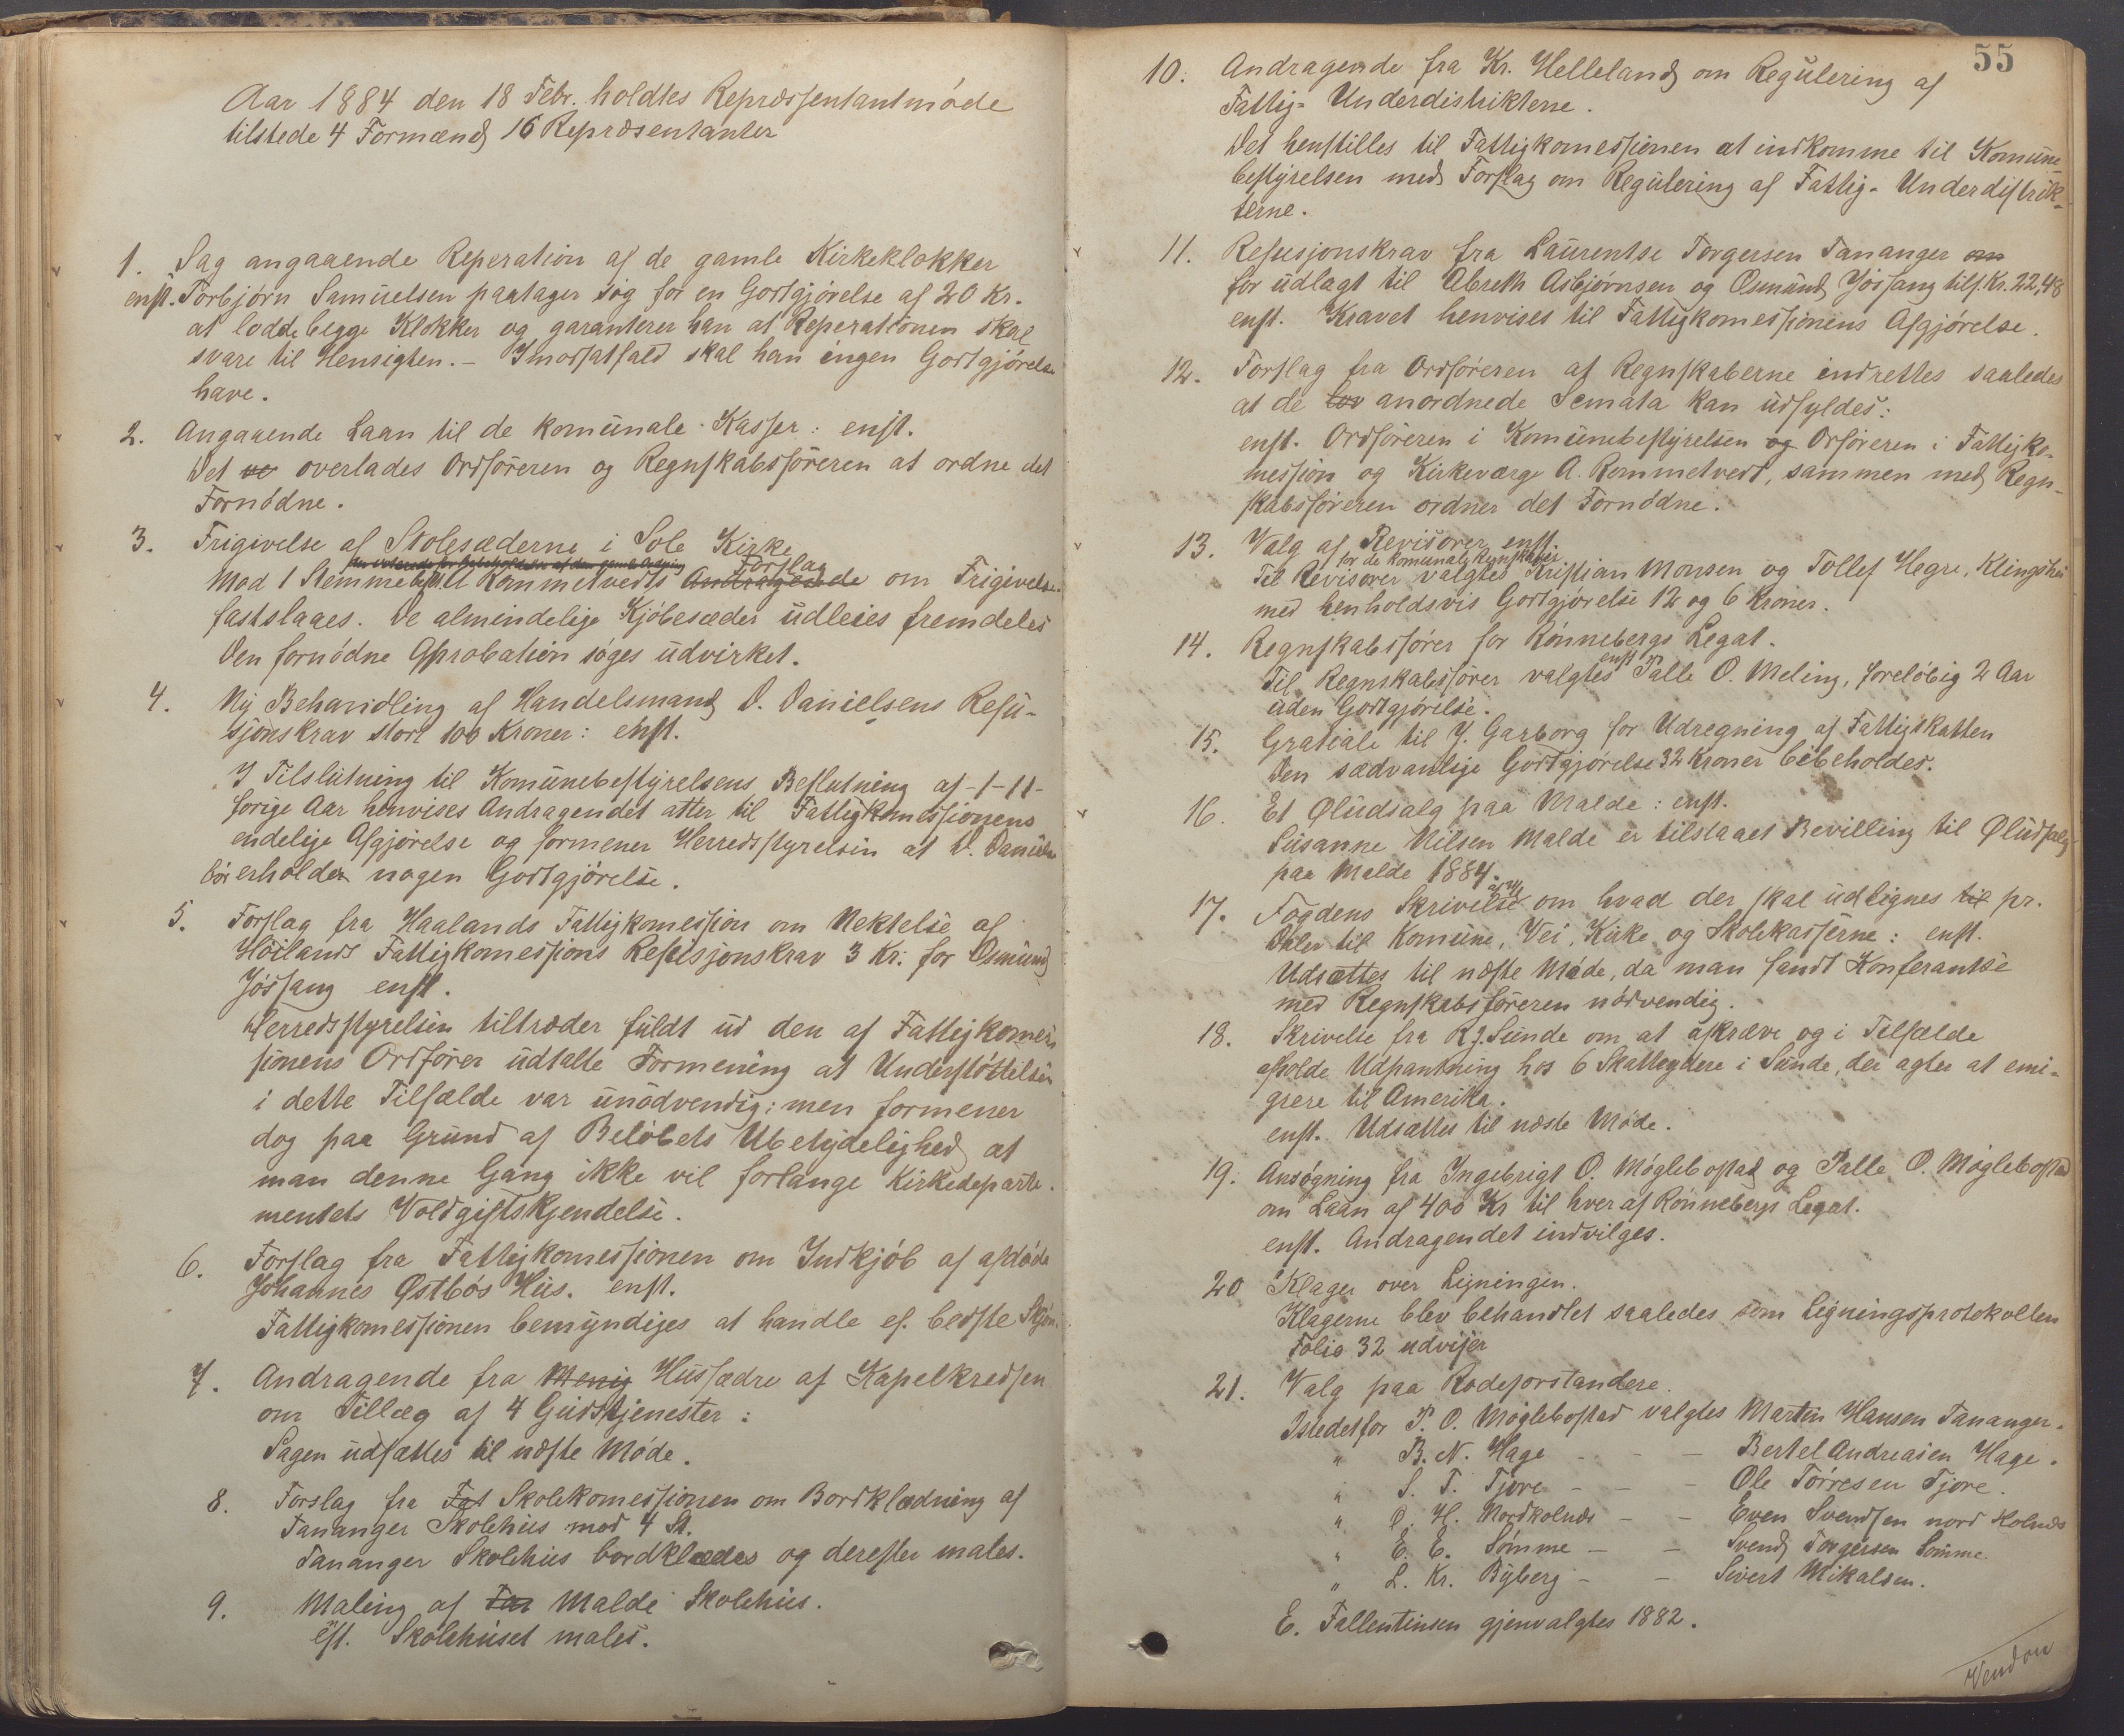 Aar 1884 den 18 Febr. holdtes Repræssentantmöde
tilstede 4 Formænd 16 Repræsentanter
1. Sag angaaende Reperation af de gamle Kirkeklokker
enst. Torbjörn Samuelsen paatager sig for en Godtgjörelse af 20 Kr.
at lodde begge Klokker og garanterer han at Reperationen skal
svare til Hensigten. - Imodsatfald skal han ingen Godtgjörelse
have.
2. Angaaende Laan til de komunale Kasser: enst.
Det ve overlades Ordföreren og Regnskabsföreren at ordne det
Fornödne.
3. Frigivelse af Stolesæderne i Sole Kirke
Forslag
Mod 1 Stemme Rommetvedts Andragende om Frigivelse
fastslaaes. De almindelige Kjöbesæder udleies fremdeles
Den fornödne Aprobation söges udvirket.
4. Ny Behandling af Handelsmand D. Danielsens Refu-
sjonskrav stort 100 Kroner: enst.
I Tilslutning til Komunebestyrelsens Beslutning af -1-11-
forige Aar henvises Andragendet atter til Fattigkomessionens
endelige Afgjörelse og formener Herredsstyrelsin at D. Danielsen
bör erholder nogen Godtgjörelse.
5. Forslag fra Haalands Fattigkomession om Nektelse af
Höilands Fattigkomessions Refusjonskrav 3 Kr. for Osmund
Jössang enst.
Herredsstyrelsen tiltræder fuldt ud den af Fattigkomes-
sionens Ordförer udtalte Formening at Understöttelsen
i dette Tilfælde var unödvendig; men formener
dog paa Grund af Belöbets Ubetydelighed at
man denne Gang ikke vil forlange Kirkedeparte-
mentets Voldgiftskjendelse.
6. Forslag fra Fattigkomessionen om Indkjöb af afdöde
Johannes Østbös Hus. enst.
Fattigkomessionen bemyndiges at handle ef. bedste Skjön.
7. Andragende fra Menig Husfædre af Kapelkredsen
om Tillæg af 4 Gudstjenester:
Sagen udsættes til næste Möde.
8. Forslag fra Fat Skolekomessionen om Bordklædning af
Tananger Skolehus mod 4 St.
Tananger Skolehus bordklædes og derefter males.
9. Maling af Tan Malde Skolehus.
est. Skolehuset males.
55
10. Andragende fra Kr. Helleland om Regulering af
Fattig-Underdistriktene.
Det henstilles til Fattigkomessionen at indkomme til Komune-
bestyrelsen med Forslag om Regulering af Fattig-Underdistrik-
terne.
11. Refusjonskrav fra Laurentse Torgersen Tananger om
for udlagt til Abreth Asbjörnsen og Osmund Jössang tils. Kr. 22,48
enst. Kravet henvises til Fattigkomessionens Afgjörelse.
12. Forslag fra Ordföreren at Regnskaberne indrettes saaledes
at de lov anordnede Scmata kan udfyldes:
enst. Ordföreren i Komunebestyrelsen og Orföreren i Fattigko-
mession og Kirkeværge A. Rommetvedt, sammen med Regn-
skabsföreren ordner det Fornödne.
13. Valg af Revisorer enst.
for de komunale Regnskaber
Til Revisorer valgtes Kristian Monsen og Tollef Hegre, Klingshei
med henholdsvis Godtgjörelse 12 og 6 Kroner.
14. Regnskabsförer for Rönnebergs Legat.
enst
Til Regnskabsförer valgtes Palle O. Meling, forelöbig 2 Aar
uden Godtgjörelse.
15. Gratiale til J. Garborg for Udregning af Fattigskatten
Den sædvanlige Godtgjörelse 32 Kroner bibeholdes.
16. Et Øludsalg paa Malde: enst.
Susanne Nilsen Malde er tilstaaet Bevilling til Øludsalg
paa Malde 1884.
17. Fogdens Skrivelse om hvad der skal udlignes til pr.
Daler til Komune, Vei, Kirke og Skolekasserne: enst.
Udsættes til næste Möde, da man fandt Konferantse
med Regnskabsföreren nödvendig.
18. Skrivelse fra R. J. Sunde om at afkræve og i Tilfælde
afholde Udpantning hos 6 Skatteydere i Sunde, der agter at emi-
grere til Amerika.
enst. Udsættes til næste Möde.
19. Ansögning fra Ingebrigt O. Möglebostad og Palle O. Möglebostad
om Laan af 400 Kr til hver af Rönnebergs Legat.
enst. Andragendet indvilges.
20 Klager over Ligningen.
Klagerne blev behandlet saaledes som Ligningsprotokollen
Folio 32 udviser
21. Valg paa Rodeforstandere.
Istedetfor P. O. Möglebostad valgtes Martin Hansen Tananger.
" B. N. Hage - - Bertel Andreasen Hage.
" S. T. Tjore - - Ole Törresen Tjore.
" O. H. Nordkolnes - - Even Svendsen nord Kolnes
" E. E. Sömme - - Svend Torgersen Sömme.
" L. Kr. Byberg - - Sivert Mikalsen.
E. Fallentinsen gjenvalgtes 1882.
Vend om